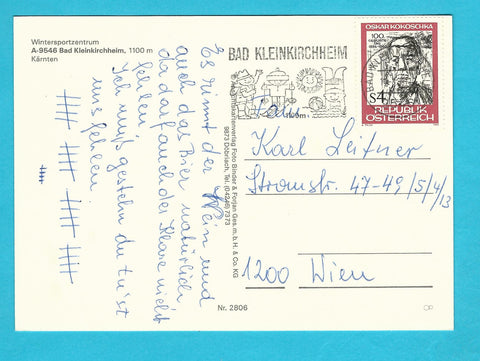 Wintersportzentrum
A-9546 Bad Kleinkirchheim, 1100 m
Kärnten
Es rinnt der Wein und
auch das Bier natürlich
da darf auch der Klare nicht
fehlen,
Ich muß gestehn du tu'st
uns fehlen
Alpiner Kunstkartenverlag Foto Binder & Forjan Ges.m.b.H. & Co. KG
9873 Döbriach, Tel. (04246) 7373
BAD KLEINKIRCHHEIM
OSKAR KOKOSCHKA
100. GEBURTSTAG
S 4
REPUBLIK
ÖSTERREICH
Karl Leitner
Stromstr. 47-49/5/4/13
1200 Wien
Nr. 2806